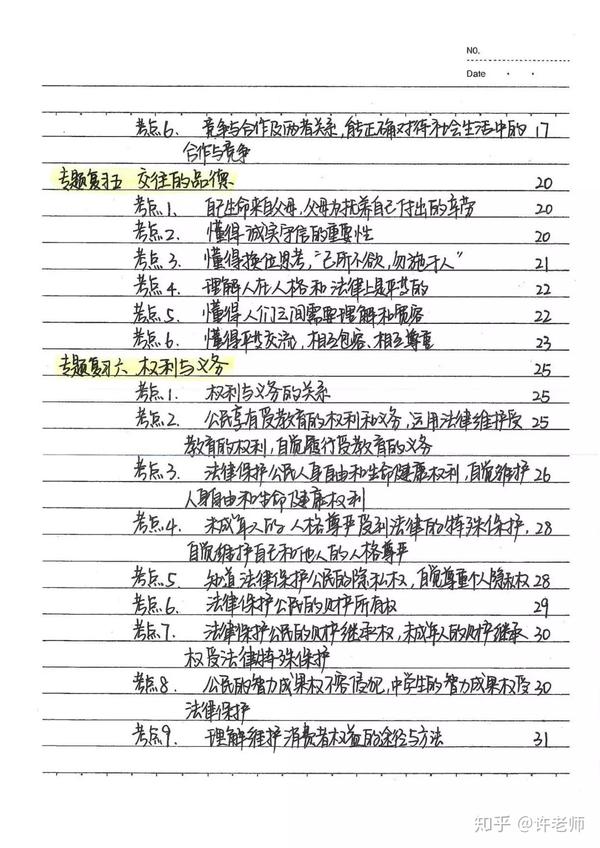 NO.
Date
考点6. 竞争与合作及两者关系，能正确对待社会生活中的 17
合作与竞争
专题复习五 交往的品德 20
考点1. 自己生命来自父母，父母为抚养自己付出的辛劳 20
考点2. 懂得诚实守信的重要性 20
考点3. 懂得换位思考，“己所不欲，勿施于人” 21
考点4. 理解人在人格和法律上是平等的 22
考点5. 懂得人们之间需要理解和宽容 22
考点6. 懂得平等交流，相互包容、相互尊重 23
专题复习六 权利与义务 25
考点1. 权利与义务的关系 25
考点2. 公民享有受教育的权利和义务，运用法律维护受 25
教育的权利，自觉履行受教育的义务
考点3. 法律保护公民人身自由和生命健康权利，自觉维护 26
人身自由和生命健康权利
考点4. 未成年人的人格尊严受到法律的特殊保护， 28
自觉维护自己和他人的人格尊严
考点5. 知道法律保护公民的隐私权，自觉尊重个人隐私权 28
考点6. 法律保护公民的财产所有权 29
考点7. 法律保护公民的财产继承权，未成年人的财产继承 30
权受法律特殊保护
考点8. 公民的智力成果权不容侵犯，中学生的智力成果权受 30
法律保护
考点9. 理解维护消费者权益的途径与方法 31
知乎 @许老师